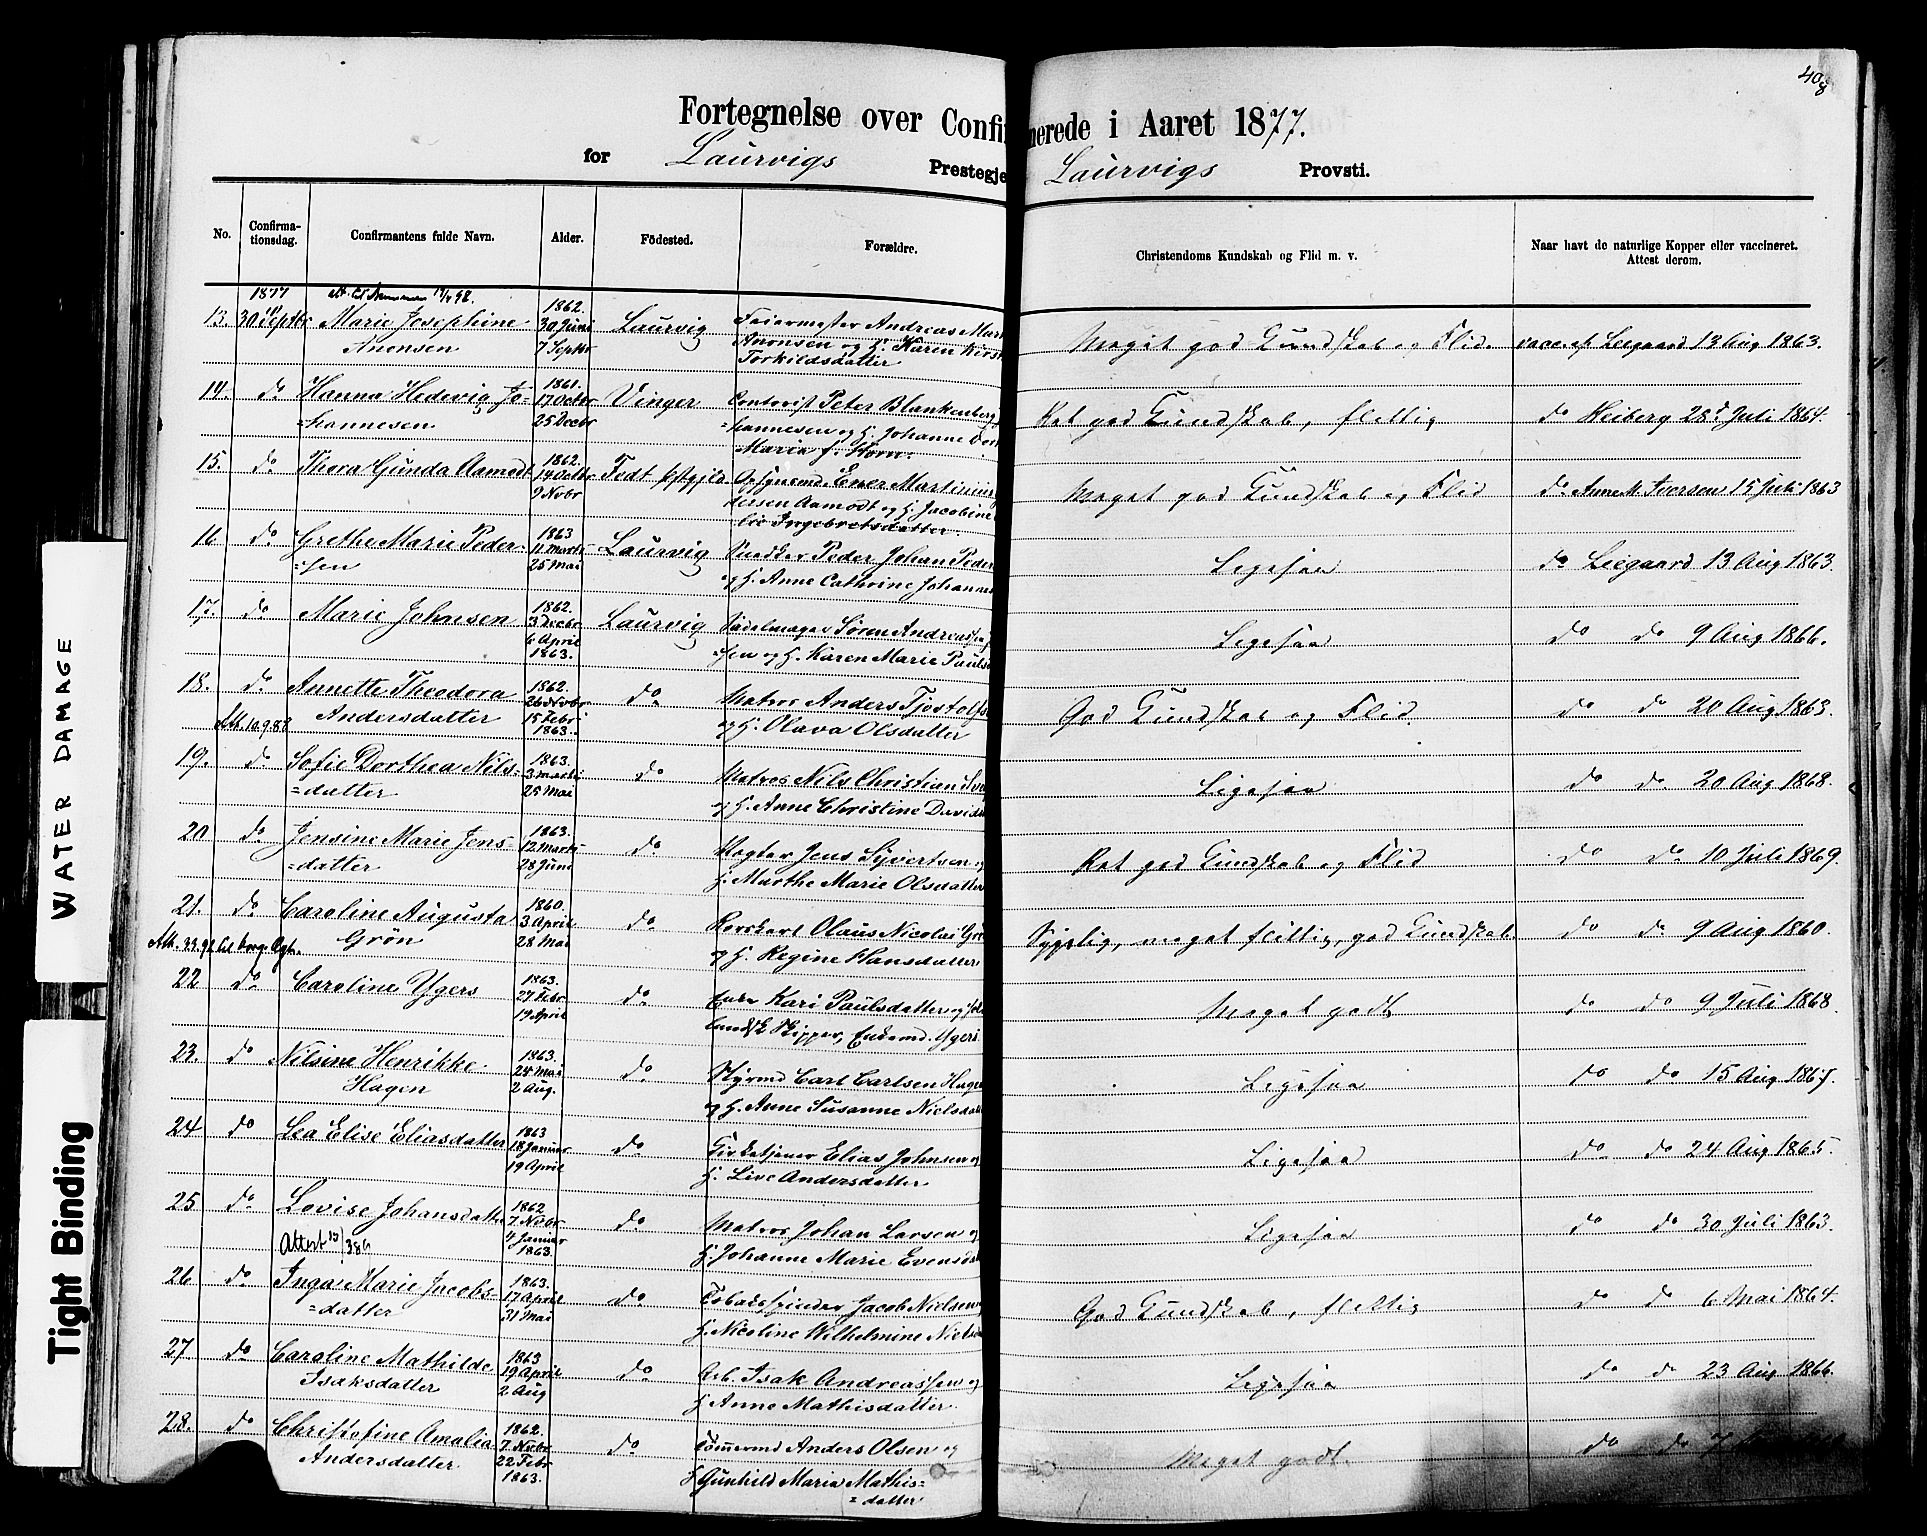 408
Fortegnelse over Confirmerede i Aaret 1877.
for Laurvigs Prestegje Laurvigs Provsti.
No. Confirma-tionsdag. Confirmantens fulde Navn. Alder. Födested. Forældre. Christendoms Kundskab og Flid m. v. Naar havt de naturlige Kopper eller vaccineret. Attest derom.
1877 1862.
13. 30 Septbr Marie Josephine 30 Juni Laurvig Feiermester Andreas Mart Meget god Kundskab og Flid. vacc. af Liegaard 13 Aug 1863.
Anonsen 7 Septbr Anonsen og H. Karen Kirst
Torkildsdatter
14. do Hanna Hedevig Jo- 1861. 17 Octbr Vinger Contorist Peter Blankenberg Ret god Kundskab, flittig do Heiberg 28 Juli 1864.
=hannesen 25 Decbr =hannesen og H. Johanne
Maria f. Horn
15. do Thora Gunda Aamodt 1862. 14 Octbr Tedt Opsynsmd Ener Martinius Meget god Kundskab og Flid do Anne M. Iversen 15 Juli 1863
9 Novbr dersen Aamodt og H. Jacobine
Ingebretsdatter.
16 do Grethe Marie Peder- 1863 11 Marts Laurvig Snedker Peder Johan Peder Ligesaa do Liegaard 13 Aug 1863.
=sen 25 Mai og H. Anne Cathrine Johannes
17. do Marie Johnsen 1862. 3 Decbr Laurvig Sadelmager Søren Andreas Ligesaa do do 9 Aug 1866.
6 April 1863. sen og H. Karen Marie Pauls
18. do Annette Theodora 1862. 26 Novbr do Matros Anders Tjostolfs God Kundskab og Flid. do do 20 Aug 1863.
Att. 10.9.88 Andersdatter 15 Febr 1863. og H. Olava Olsdatter
19. do Sofie Dorthea Nils- 1863. 3 Marts do Matros Nils Christian Ligesaa do do 20 Aug 1868.
=datter 25 Mai og H. Anne Christine Davids
20 do Jensine Marie Jens- 1863. 12 Marts do Vegter Jens Syvertsen og Ret god Kundskab og Flid do do 10 Juli 1869.
=datter 28 Juni H. Marthe Marie Olsdatter
21. do Caroline Augusta 1860. 3 April do Olaus Nicolai Grø Sygelig, meget flittig, god Kundskab. do do 9 Aug 1860.
Grön 28 Mai og H. Regine Hansdatter
22 do Caroline Ygers 1863. 27 Febr do Enke Kari Paulsdatter og Meget godt do do 9 Juli 1868.
19 April landsk Skipper, Enkemd. Ygers
23. do Nilsine Henrikke 1863. 24 Mai do Styrmd Carl Carlsen Hage Ligesaa do do 15 Aug 1867.
Hagen 2 Aug. og H. Anne Susanne Nielsdat
24 do Lea Elise Eliasdatter 1863 18 Januar do Kirketjener Elias Johnsen og Ligesaa do do 24 Aug 1865.
19 April H. Live Andersdatter
25 do Lovise Johansdatte 1862 7 Novbr do Matros Johan Larsen og Ligesaa do do 30 Juli 1863.
Attest 4 Januar 1863. H. Johanne Marie Evensda
26 do Inga Marie Jacobs- 1863. 17 April do Tobakspinder Jacob Nielsen God Kundskab, flittig do do 6 Mai 1864.
=datter 31 Mai H. Nicoline Wilhelmine Niels
27 do Caroline Mathilde 1863 19 April do Arb. Isak Andreassen og Ligesaa do do 23 Aug 1866.
Isaksdatter 2 Aug H. Anne Mathisdatter
28. do Christofine Amalia 1862. 7 Novbr do Tømermd Anders Olsen og Meget godt. do do 7
Andersdatter 22 Febr 1863. H Gunhild Maria Mathis=
=datter
WATER DAMAGE
Tight Binding